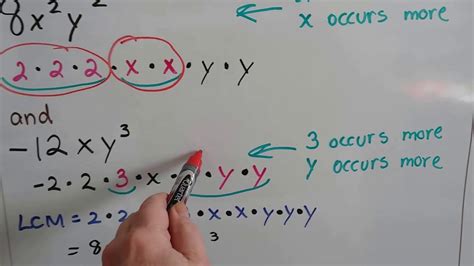 8x²y²
x occurs more
2 · 2 · 2 · x · x · y · y
and
-12xy³
3 occurs more
y occurs more
-2 · 2 · 3 · x · y · y
LCM = 2 · 2 · x · x · y · y · y
= 8 3